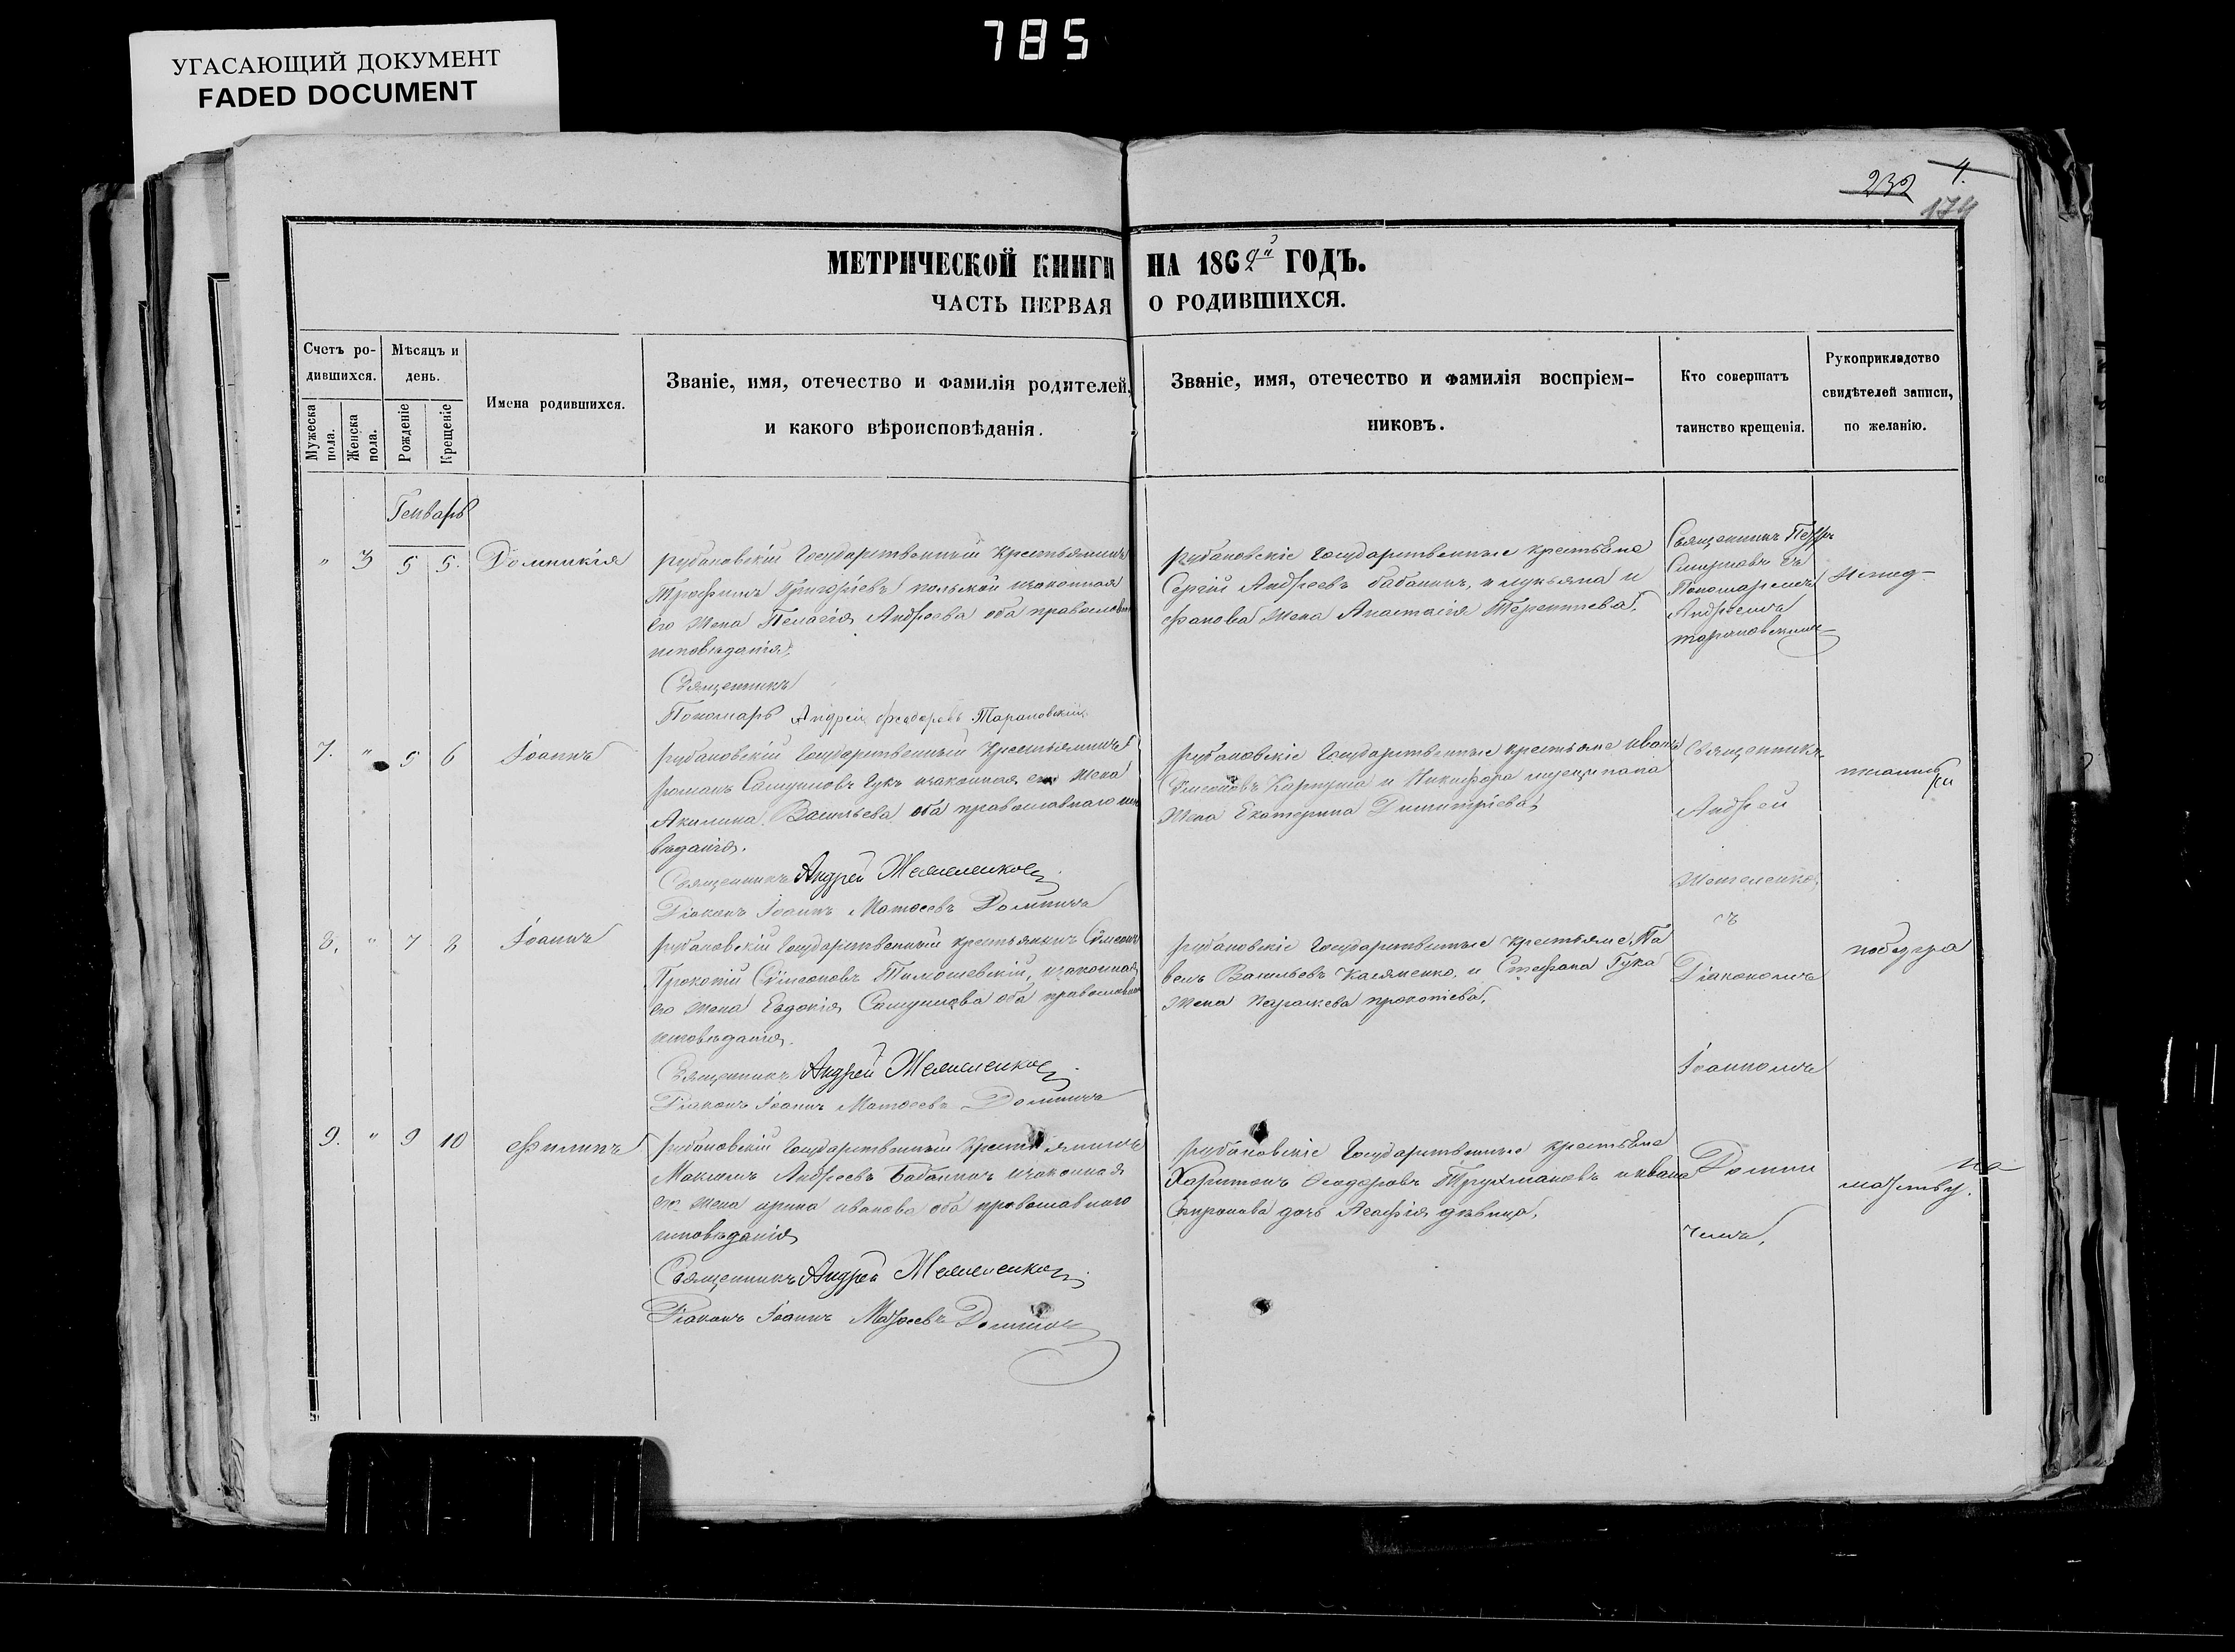 785
УГАСАЮЩИЙ ДОКУМЕНТ
FADED DOCUMENT
232 4.
174
МЕТРИЧЕСКОЙ КНИГИ НА 186 ГОДЪ.
ЧАСТЬ ПЕРВАЯ О РОДИВШИХСЯ.
Счетъ ро-
дившихся.
Мужеска пола.
Женска пола.
Мѣсяцъ и
день.
Рожденіе
Крещеніе
Имена родившихся.
Званіе, имя, отечество и фамилія родителей,
и какого вѣроисповѣданія.
Званіе, имя, отечество и фамилія воспріем-
никовъ.
Кто совершатъ
таинство крещенія.
Рукоприкладство
свидѣтелей записи,
по желанію.
Генварь
" 3 5 5. Домникія
рубановскій Государственный крестьянинъ
Трофимъ Григорьевъ польской изаконная
его жена Пелагія Андреева оба православн
исповѣданія,
Священникъ
Пономарь Андрей Феодоровъ Тарановскій
рубановскіе Государственные крестьяне
Сергій Андреевъ бабанинъ, и лукьяна и
фанова жена Анастасія Терентіева,
Священникъ Петръ
Самуиловъ съ
Пономаремъ
Андреемъ
тарановскимъ
7. " 5 6 Іоаннъ
рубановскій Государственный крестьянинъ
романъ Самуиловъ Гукъ изаконная его жена
Акилина Васильева оба православнаго испо
вѣданія.
Священникъ Андрей
Діаконъ Іоаннъ Матѳеевъ
рубановскіе Государственные крестьяне иванъ
Симеоновъ Карпуша и Никифора
жена Екатерина Димитріева,
Священникъ
Андрей
съ
Діакономъ
Іоанномъ
8. " 7 8 Іоаннъ
рубановскій Государственный крестьянинъ
Прокопій Симеоновъ изаконная
его жена Евдокія Самуилова оба православн
исповѣданія.
Священникъ Андрей
Діаконъ Іоаннъ Матѳеевъ
рубановскіе Государственные крестьяне Па
велъ Васильевъ Касяненко, и Стефана Гука
жена параскева прокопіева,
9. " 9 10 Филипъ
рубановскій Государственный крестьянинъ
Максимъ Андреевъ Бабанинъ изаконная
его жена ирина иванова оба православнаго
исповѣданія
Священникъ Андрей
Діаконъ Іоаннъ Матѳеевъ
рубановскіе Государственные крестьяне
Харитонъ Ѳеодоровъ Трухмановъ и ивана
дочь Агафія дѣвица,